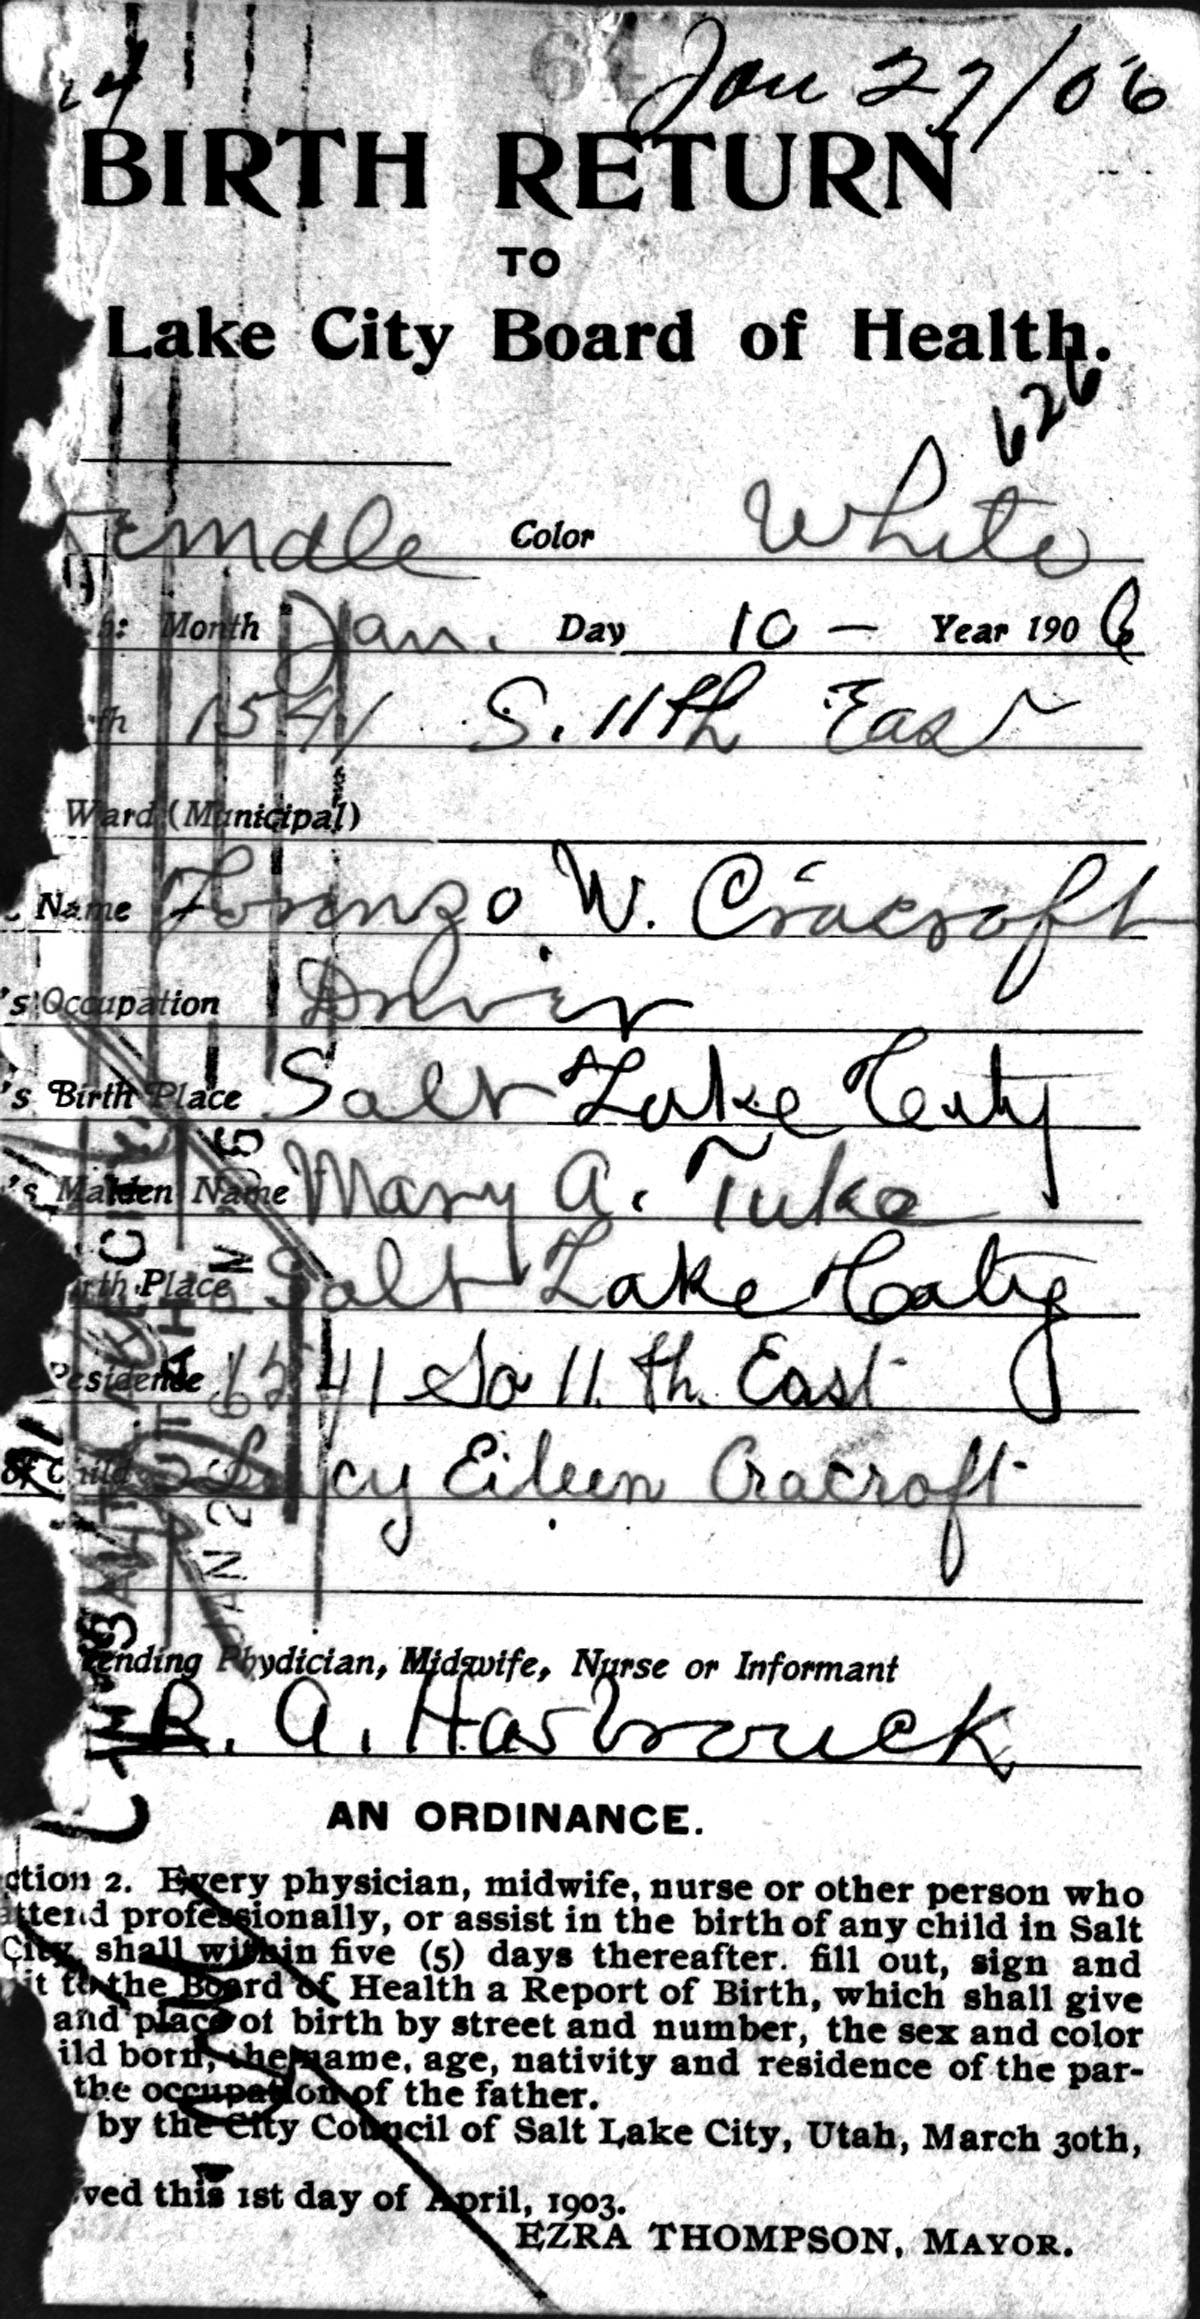 64
Jan 27/06
BIRTH RETURN
TO
Lake City Board of Health.
626
Female Color White
h: Month Jan. Day 10 — Year 1906
th 1541 S. 11th East
Ward (Municipal)
Name Lorenzo W. Cracroft
's Occupation Driver
's Birth Place Salt Lake City
's Maiden Name Mary A. Tuke
rth Place Salt Lake City
esidence 1541 So 11th East
of Child Lucy Eileen Cracroft
ending Phydician, Midwife, Nurse or Informant
R. A. Hasbrouck
AN ORDINANCE.
ction 2. Every physician, midwife, nurse or other person who
attend professionally, or assist in the birth of any child in Salt
City, shall within five (5) days thereafter. fill out, sign and
it to the Board of Health a Report of Birth, which shall give
and place of birth by street and number, the sex and color
ild born, the name, age, nativity and residence of the par-
the occupation of the father.
by the City Council of Salt Lake City, Utah, March 30th,
ved this 1st day of April, 1903.
EZRA THOMPSON, MAYOR.